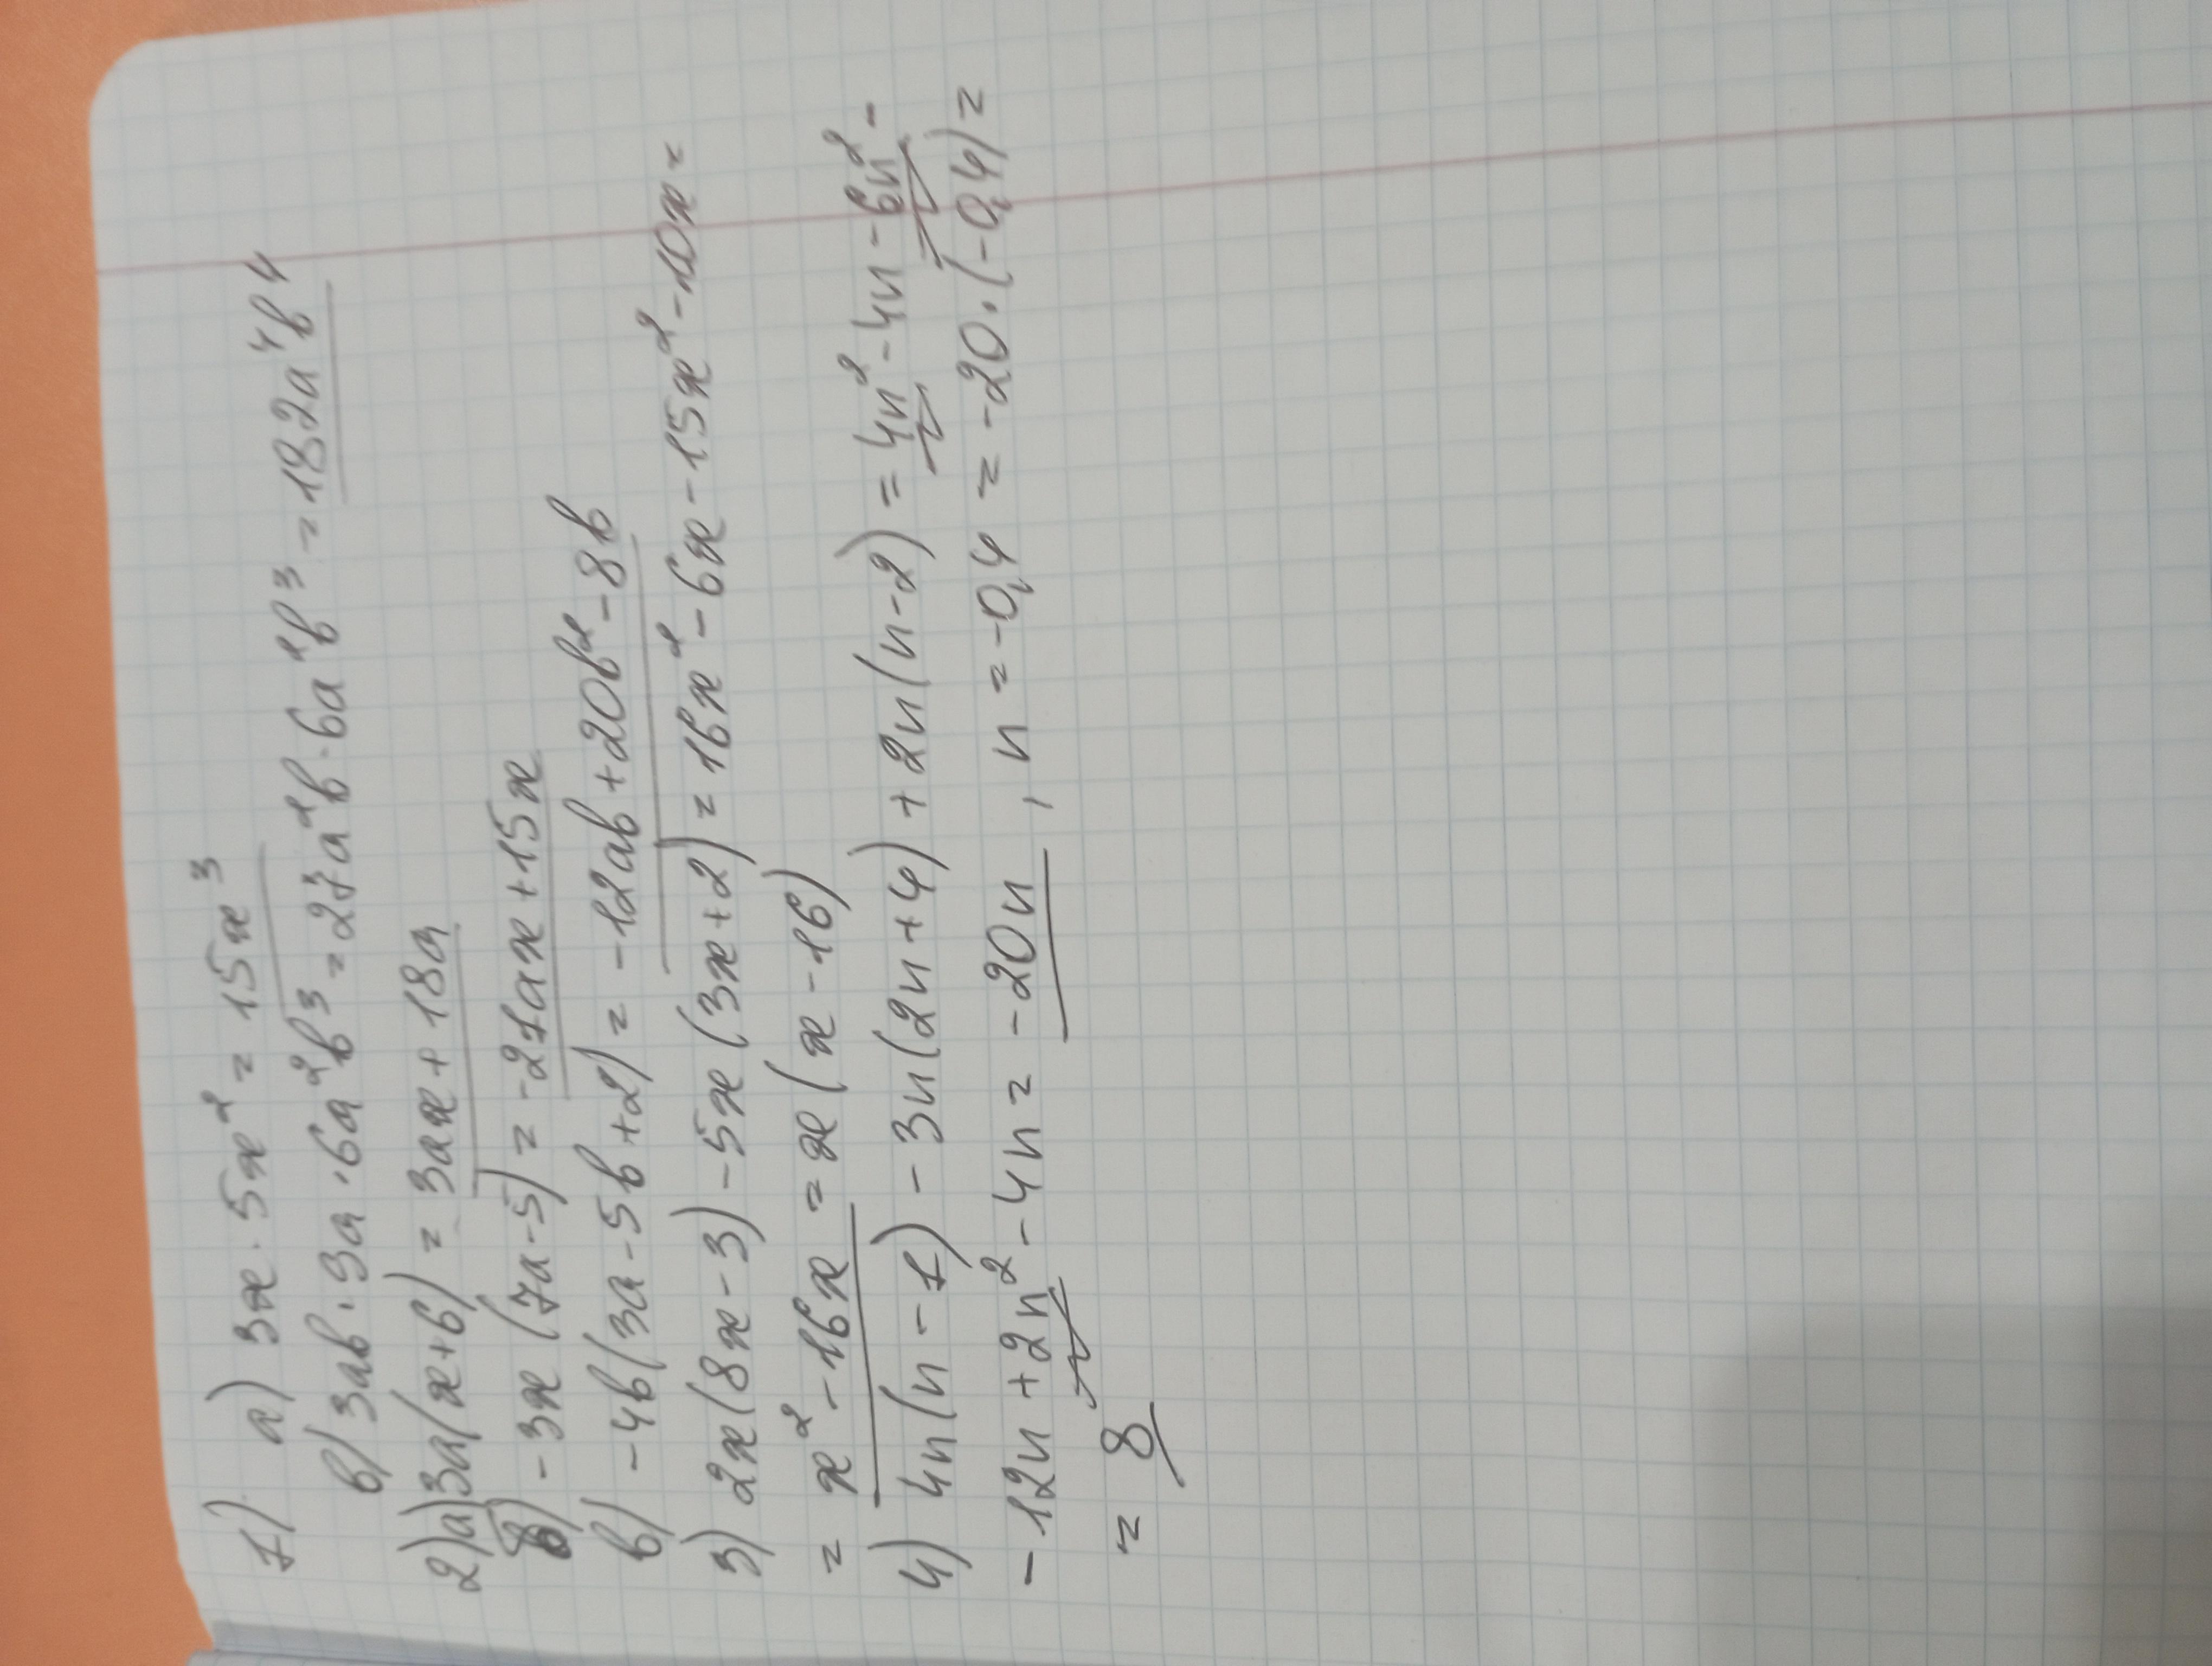 1) а) 3x · 5x² = 15x³
в) 3ав · 9а · 6а²в³ = 27а²в · 6а²в³ = 182а⁴в⁴
2) а) 3а(x+6) = 3аx + 18а
б) -3x(7а-5) = -21аx + 15x
в) -4в(3а-5в+2) = -12ав + 20в² - 8в
3) 2x(8x-3) - 5x(3x+2) = 16x² - 6x - 15x² - 10x =
= x² - 16x = x(x-16)
4) 4n(n-1) - 3n(2n+4) + 2n(n-2) = 4n² - 4n - 6n² -
- 12n + 2n² - 4n = -20n, n = -0,4 = -20·(-0,4) =
= 8